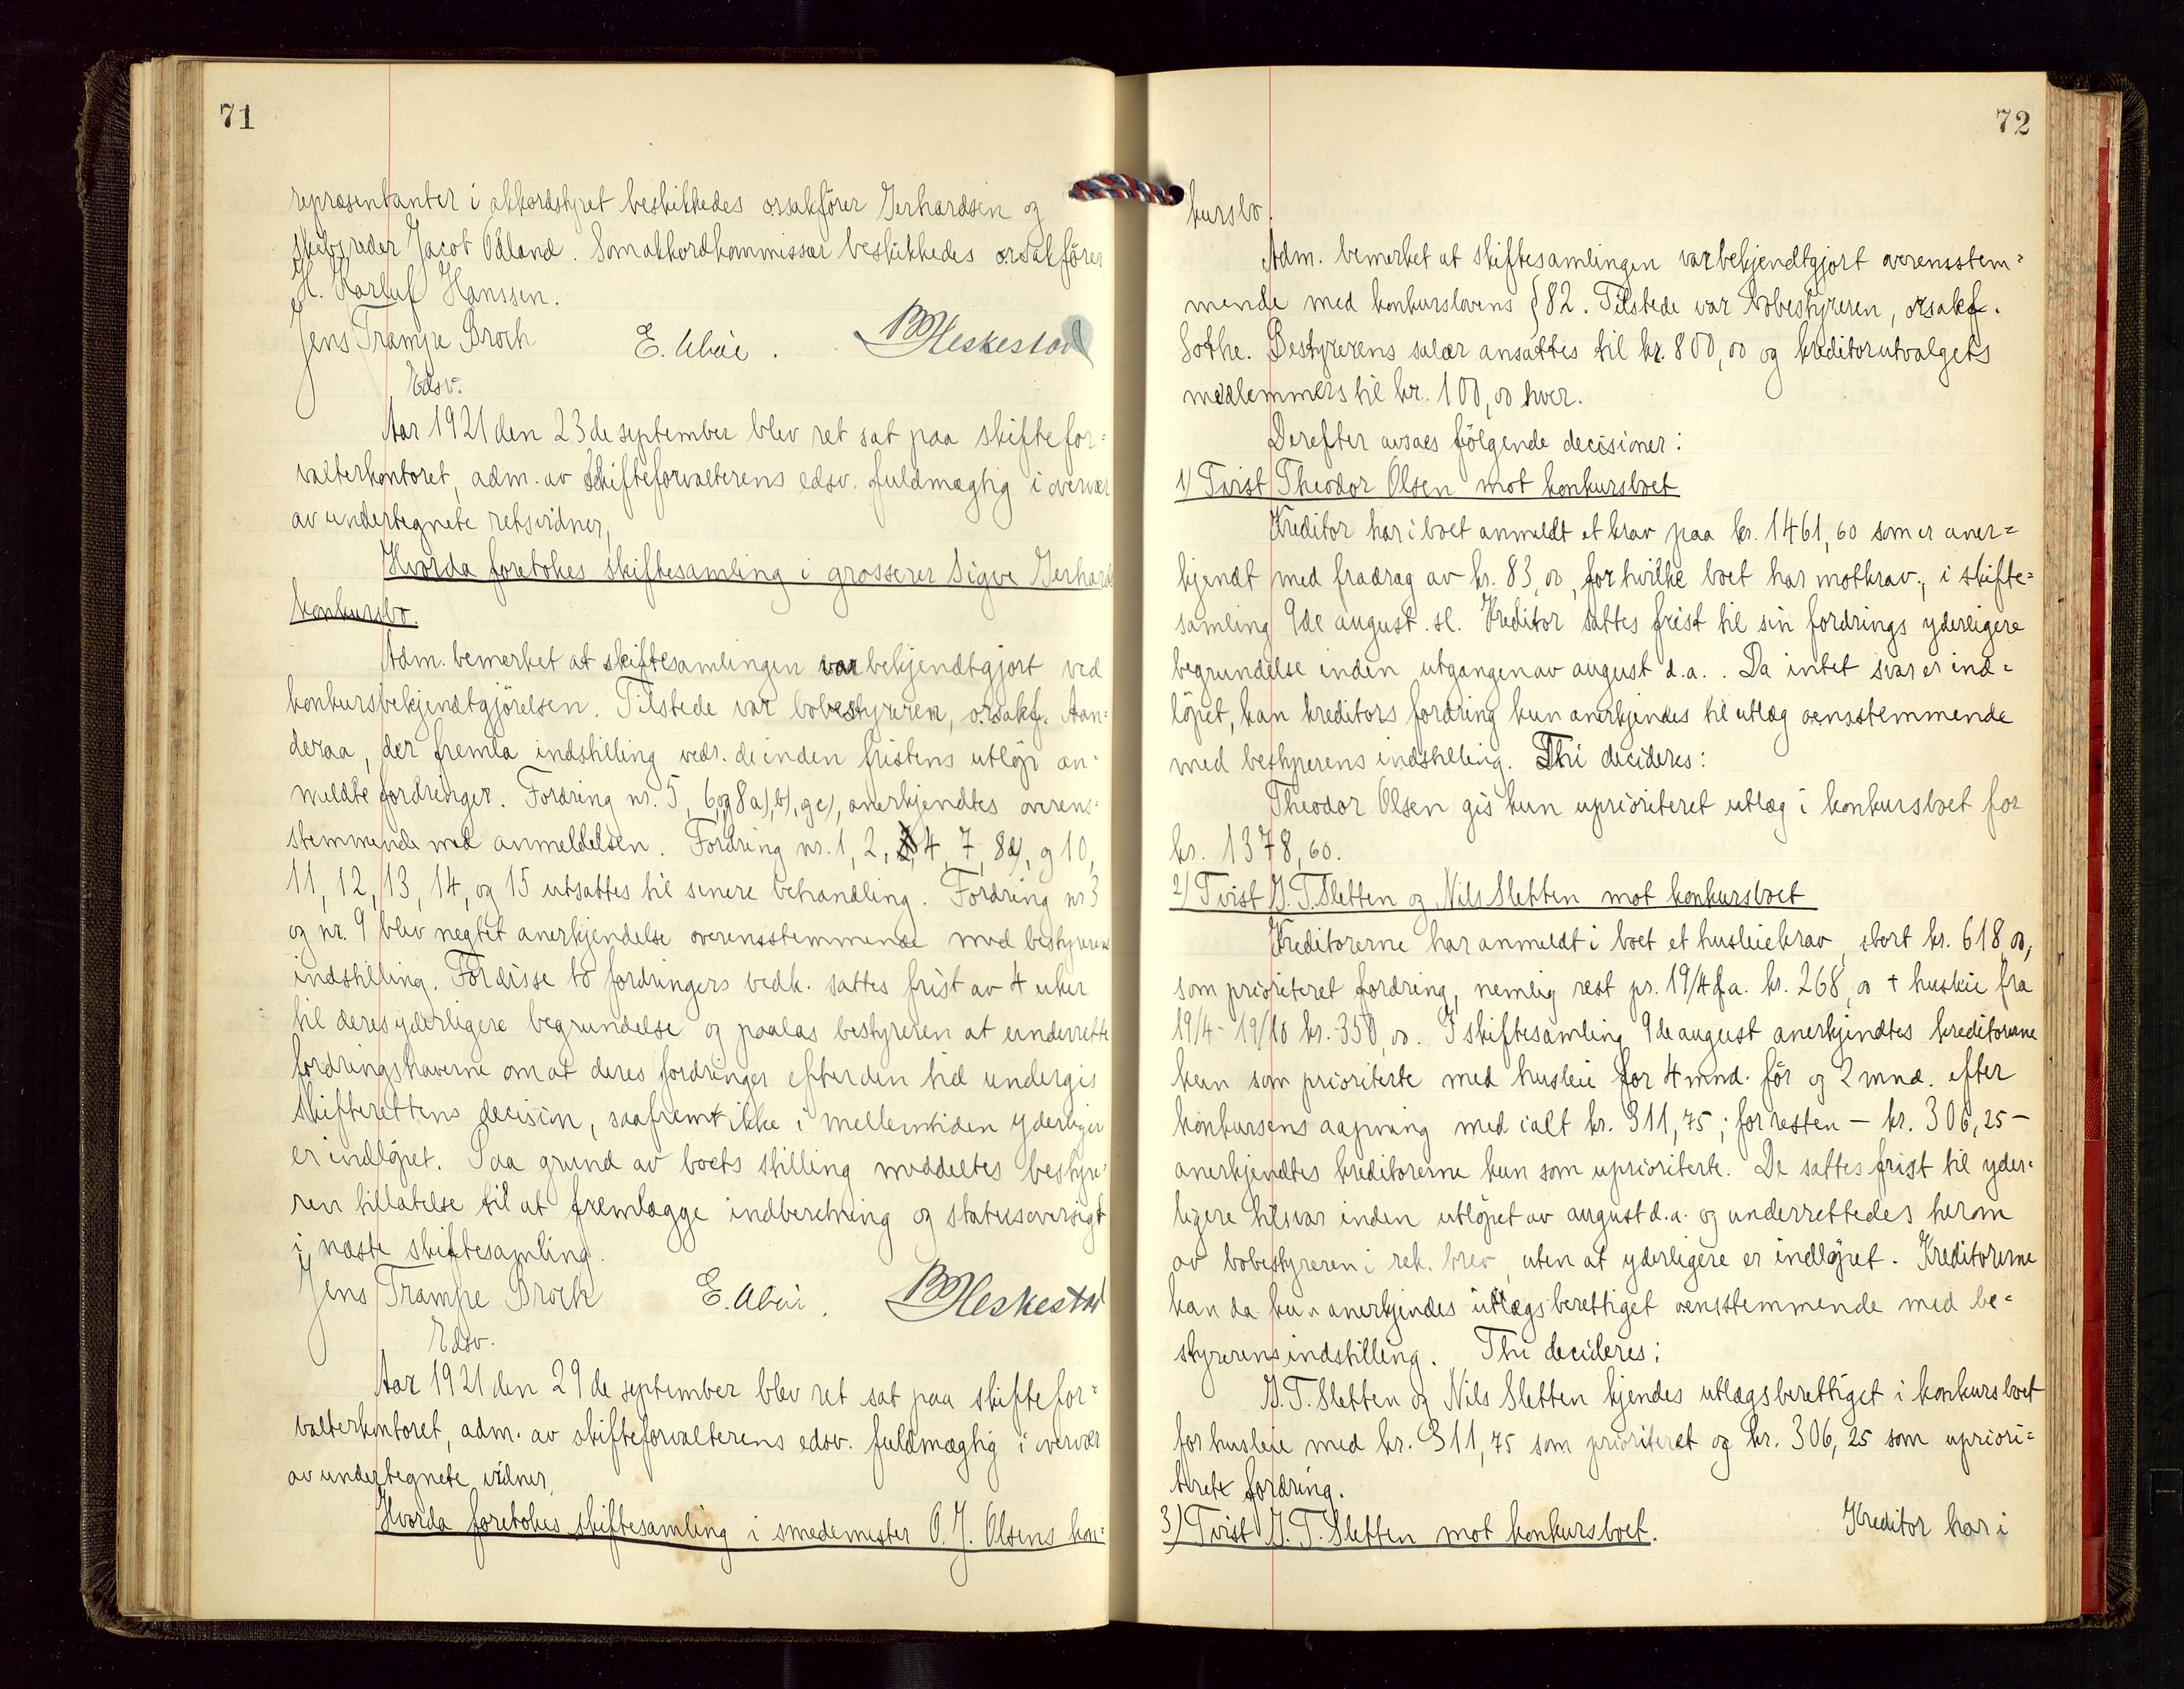 71
repræsentanter i akkordstyret beskikkedes orsakfører Gerhardsen og
skibsreder Jacob Odland. Som akkordkommissær beskikkedes orsakfører
H. Karluf Hanssen.
Jens Trampe Broch E. Abøe. B M Heskestad
Edsv.
Aar 1921 den 23de september blev ret sat paa skiftefor=
valterkontoret, adm. av skifteforvalterens edsv. fuldmægtig i overvær
av undertegnete retsvidner,
Hvorda foretokes skiftesamling i grosserer Sigve Gerhards
konkursbo.
Adm. bemerket at skiftesamlingen var bekjendtgjort ved
konkursbekjendtgjørelsen. Tilstede var bobestyreren, orsakf. Aan=
deraa, der fremla indstilling vedr. de inden fristens utløp an=
meldte fordringer. Fordring nr. 5, 6, og 8 a), b), og c), anerkjendtes overens=
stemmende med anmeldelsen. Fordring nr. 1, 2, 4, 7, 8d), og 10,
11, 12, 13, 14, og 15 utsattes til senere behandling. Fordring nr 3
og nr. 9 blev negtet anerkjendelse overensstemmende med bestyrerens
indstilling. For disse to fordringers vedk. sattes frist av 4 uker
til deres yderligere begrundelse og paalas bestyreren at underrette
fordringshaverne om at deres fordringer efter den tid undergis
skifterettens decision, saafremt ikke i mellemtiden yderliger
er indløpet. Paa grund av boets stilling meddeltes bestyre=
ren tillatelse til at fremlægge indberetning og statusoversigt
i næste skiftesamling.
Jens Trampe Broch E. Abøe. B M Heskestad
Edsv.
Aar 1921 den 29de september blev ret sat paa skiftefor=
valterkontoret, adm. av skifteforvalterens edsv. fuldmægtig i overvær
av undertegnete vidner,
Hvorda foretokes skiftesamling i smedemester O. J. Olsens kon=
72
kursbo.
Adm. bemerket at skiftesamlingen var bekjendtgjort overensstem=
mende med konkurslovens § 82. Tilstede var bobestyreren, orsakf.
Sothe. Bestyrerens salær ansattes til kr. 800,00 og kreditorutvalgets
medlemmers til kr. 100,00 hver.
Derefter avsaes følgende decisioner:
1) Tvist Theodor Olsen mot konkursboet
Kreditor har i boet anmeldt et krav paa kr. 1461,60 som er aner=
kjendt med fradrag av kr. 83,00, for hvilke boet har motkrav, i skifte=
samling 9de august. sl. Kreditor sattes frist til sin fordrings yderligere
begrundelse inden utgangen av august d.a.. Da intet svar er ind=
løpet, kan kreditors fordring kun anerkjendes til utlæg oensstemmende
med bestyrerens indstilling. Thi decideres:
Theodor Olsen gis kun uprioriteret utlæg i konkursboet for
kr. 1378,60.
2) Tvist G. T. Sletten og Nils Sletten mot konkursboet
Kreditorerne har anmeldt i boet et husleiekrav, stort kr. 618,00,
som prioriteret fordring, nemlig rest pr. 19/4 f.a. kr. 268,00 + husleie fra
19/4 - 19/10 kr. 350,00. I skiftesamling 9de august anerkjendtes kreditorerne
kun som prioriterte med husleie for 4 mnd. før og 2 mnd. efter
konkursens aapning med ialt kr. 311,75; for resten – kr. 306,25 –
anerkjendtes kreditorerne kun som uprioriterte. De sattes frist til yder=
ligere tilsvar inden utløpet av august d.a. og underrettedes herom
av bobestyreren i rek. brev, uten at yderligere er indløpet. Kreditorerne
kan da kun anerkjendes utlægsberettiget oensstemmende med be=
styrerens indstilling. Thi decideres:
G. T. Sletten og Nils Sletten kjendes utlægsberettiget i konkursboet
for husleie med kr. 311,75 som prioriteret og kr. 306,25 som upriori=
teret fordring.
3) Tvist G. T. Sletten mot konkursboet. Kreditor har i